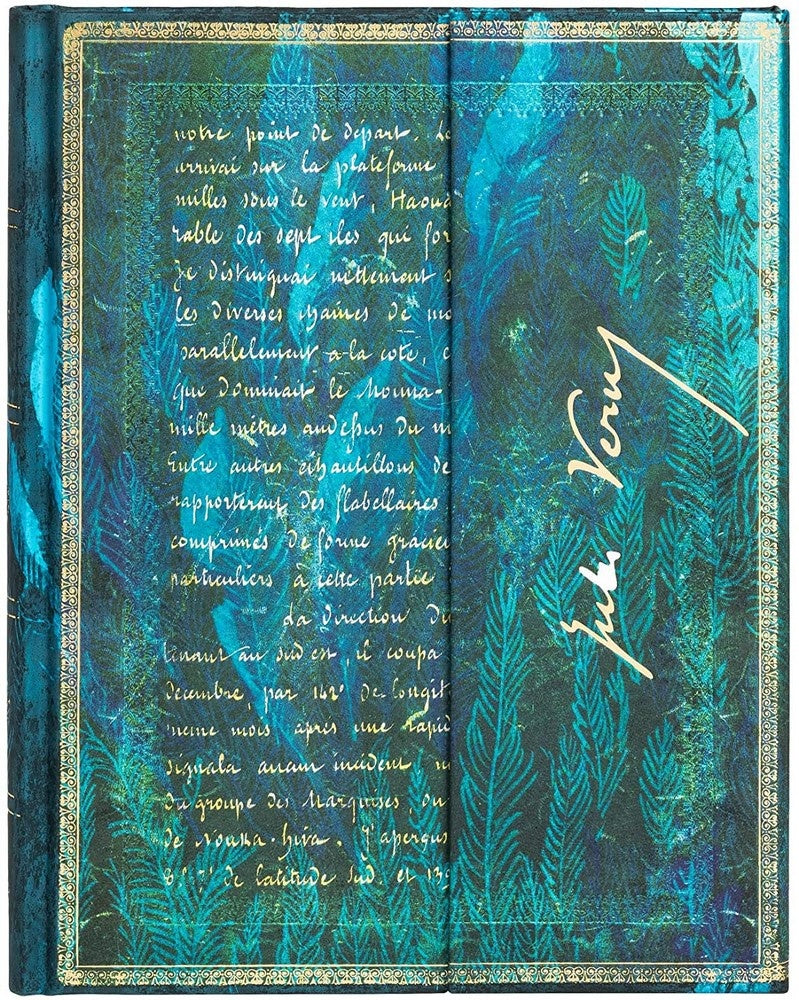 notre point de départ. Le
arrivai sur la plateforme
milles sous le vent, Haoua
rable des sept iles qui for
Je distinguai nettement
les diverses chaines de mo
parallelement à la coté, c
que dominait le Mouna-
mille mètres audessus du n
Entre autres échantillons de
rapporterent des flabellaires
comprimés de forme gracieu
particuliers à cette partie
la direction du
tenant au sud est, il coupa
décembre, par 142° de longit
meme mois après une rapid
signala aucun incident
du groupe des Marquises, ou
de Nouka-hiva. J'aperçus
8° 7' de latitude sud. et 139
Jules Verne